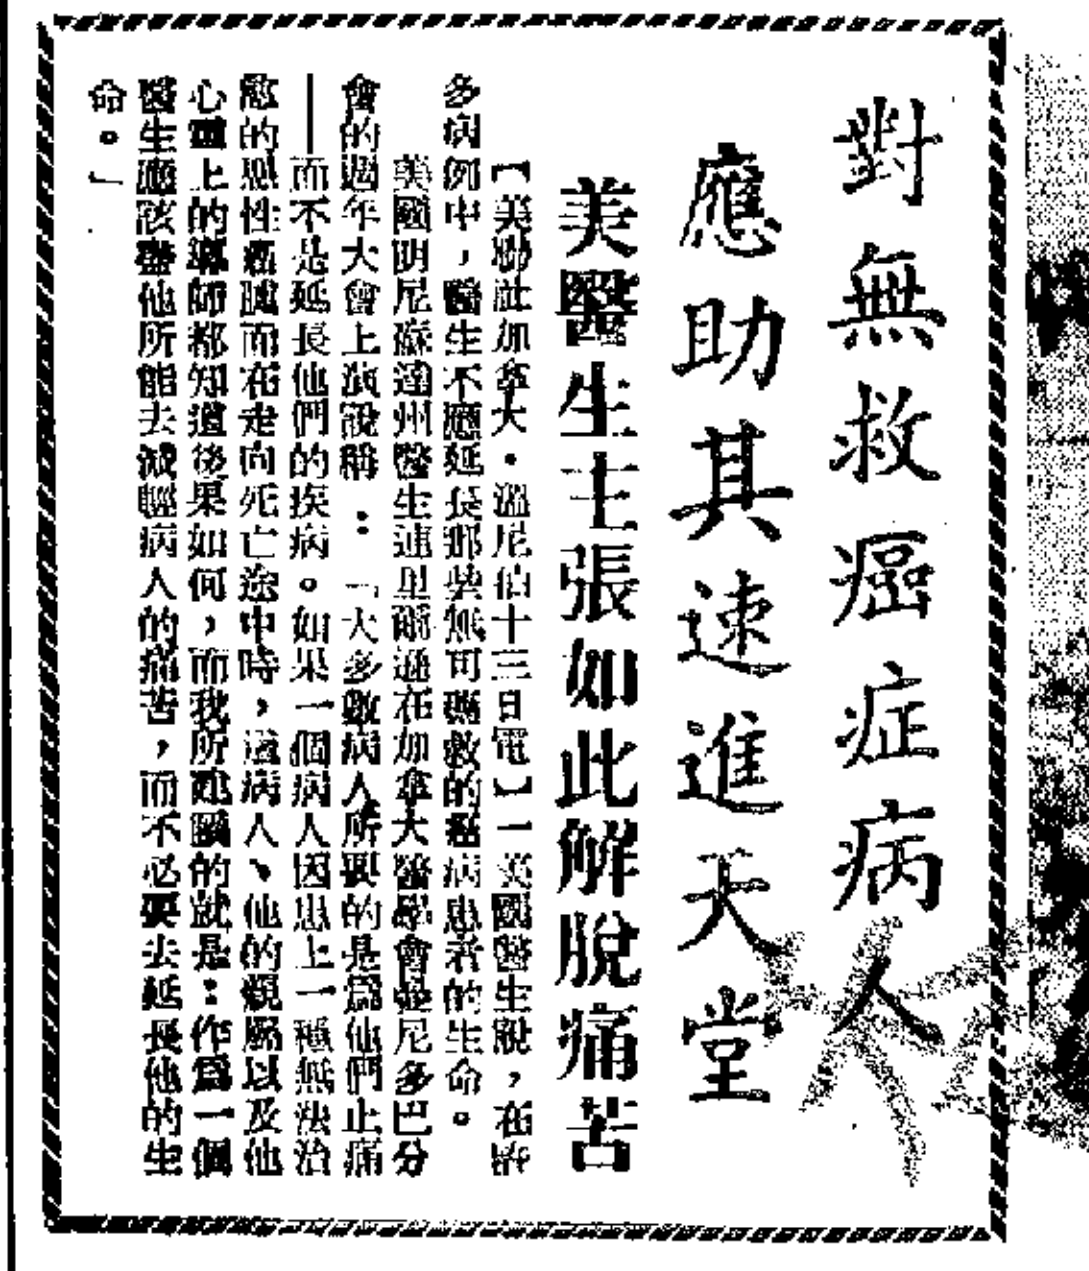 對無救癌症病人
應助其速進天堂
美醫生主張如此解脫痛苦
【美聯社加拿大・溫尼伯十三日電】一美國醫生說，在許
多病例中，醫生不應延長那些無可挽救的癌病患者的生命。
美國明尼蘇達州醫生連里爾遜在加拿大醫學會曼尼多巴分
會的週年大會上演說稱：「大多數病人所要的是爲他們止痛
──而不是延長他們的疾病。如果一個病人因患上一種無法治
愈的惡性癌腫而在走向死亡途中時，這病人、他的親屬以及他
心靈上的導師都知道後果如何，而我所建議的就是：作爲一個
醫生應該盡他所能去減輕病人的痛苦，而不必要去延長他的生
命。」